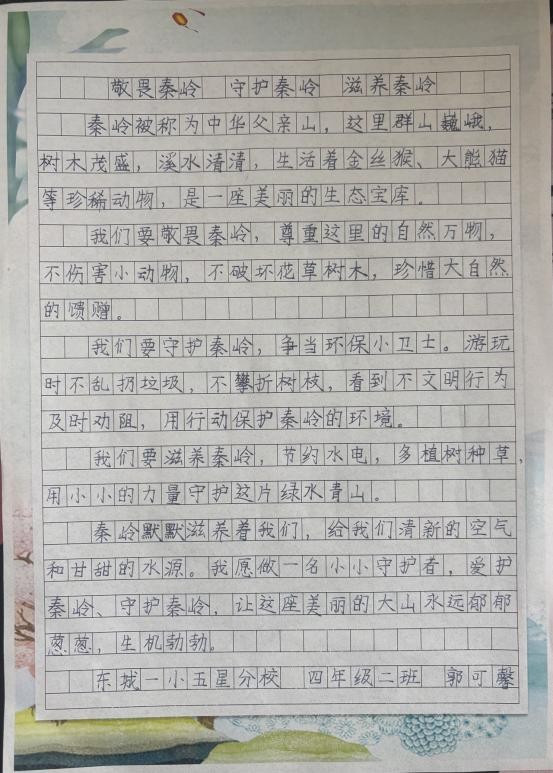 敬畏秦岭 守护秦岭 滋养秦岭
秦岭被称为中华父亲山，这里群山巍峨，
树木茂盛，溪水清清，生活着金丝猴、大熊猫
等珍稀动物，是一座美丽的生态宝库。
我们要敬畏秦岭，尊重这里的自然万物，
不伤害小动物，不破坏花草树木，珍惜大自然
的馈赠。
我们要守护秦岭，争当环保小卫士。游玩
时不乱扔垃圾，不攀折树枝，看到不文明行为
及时劝阻，用行动保护秦岭的环境。
我们要滋养秦岭，节约水电，多植树种草，
用小小的力量守护这片绿水青山。
秦岭默默滋养着我们，给我们清新的空气
和甘甜的水源。我愿做一名小小守护者，爱护
秦岭、守护秦岭，让这座美丽的大山永远郁郁
葱葱，生机勃勃。
东城一小五星分校 四年级二班 郭可馨